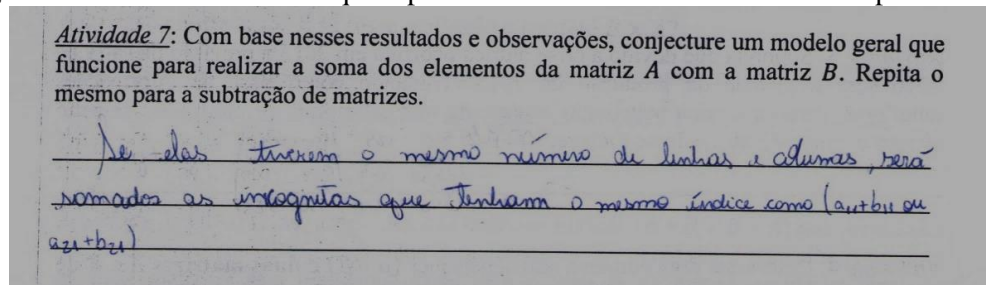 Atividade 7: Com base nesses resultados e observações, conjecture um modelo geral que
funcione para realizar a soma dos elementos da matriz A com a matriz B. Repita o
mesmo para a subtração de matrizes.
Se elas tiverem o mesmo número de linhas e colunas, será
somados as incognitas que tenham o mesmo índice como (a11+b11 ou
a21+b21)